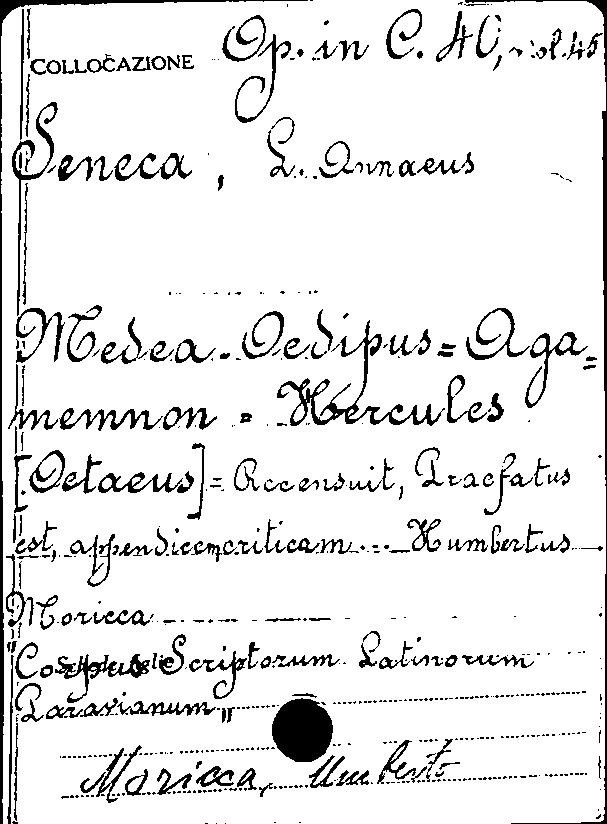 COLLOCAZIONE Op. in C. 40, vol. 45
Seneca, L. Annaeus
Medea - Oedipus = Aga=
memnon = Hercules
[Oetaeus] = Recensuit, Praefatus
est, appendicem criticam ... Humbertus
Moricca
"Corpus Scriptorum Latinorum
Paravianum„
Moricca, Umberto